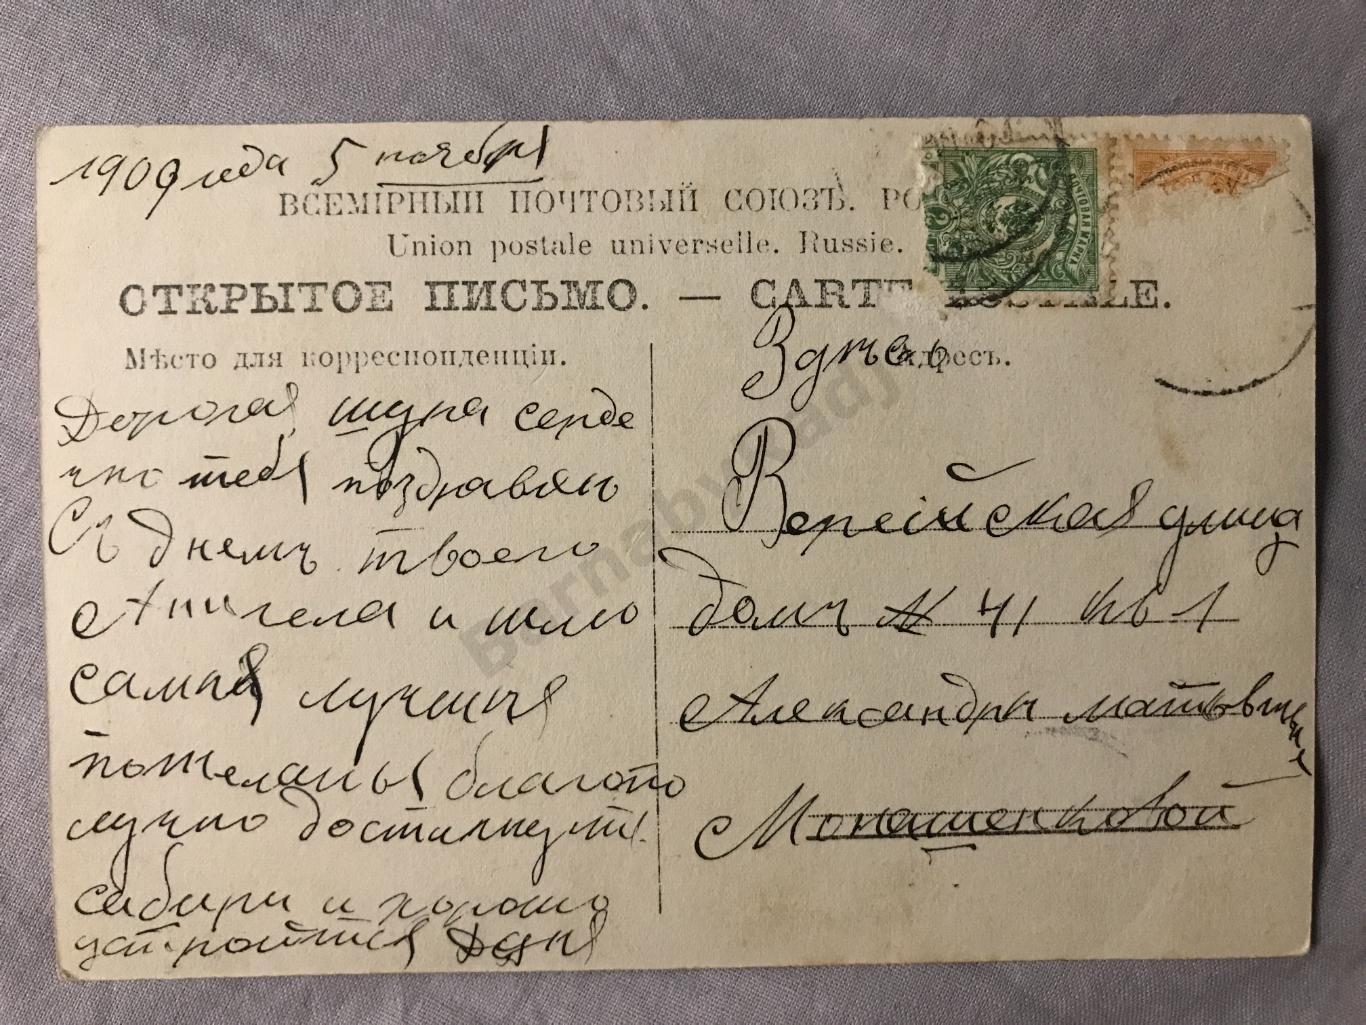 1909 года 5 ноября
ВСЕМІРНЫЙ ПОЧТОВЫЙ СОЮЗЪ. РО
Union postale universelle. Russie.
ОТКРЫТОЕ ПИСЬМО. — CARTE POSTALE.
Мѣсто для корреспонденціи.
Адресъ.
ПОЧТОВАЯ МАРКА
Дорогая шура серде
чно тебя поздравяю
Съ днемъ твоего
Ангела и шлю
самыя лучшыя
пожеланыя благопо
лучно достигнуть
сибири и хорошо
устроится
Здѣсь
Верейская улица
домъ № 41 кв 1
Александры Матвѣвны
Монашенковой
barnabywadj